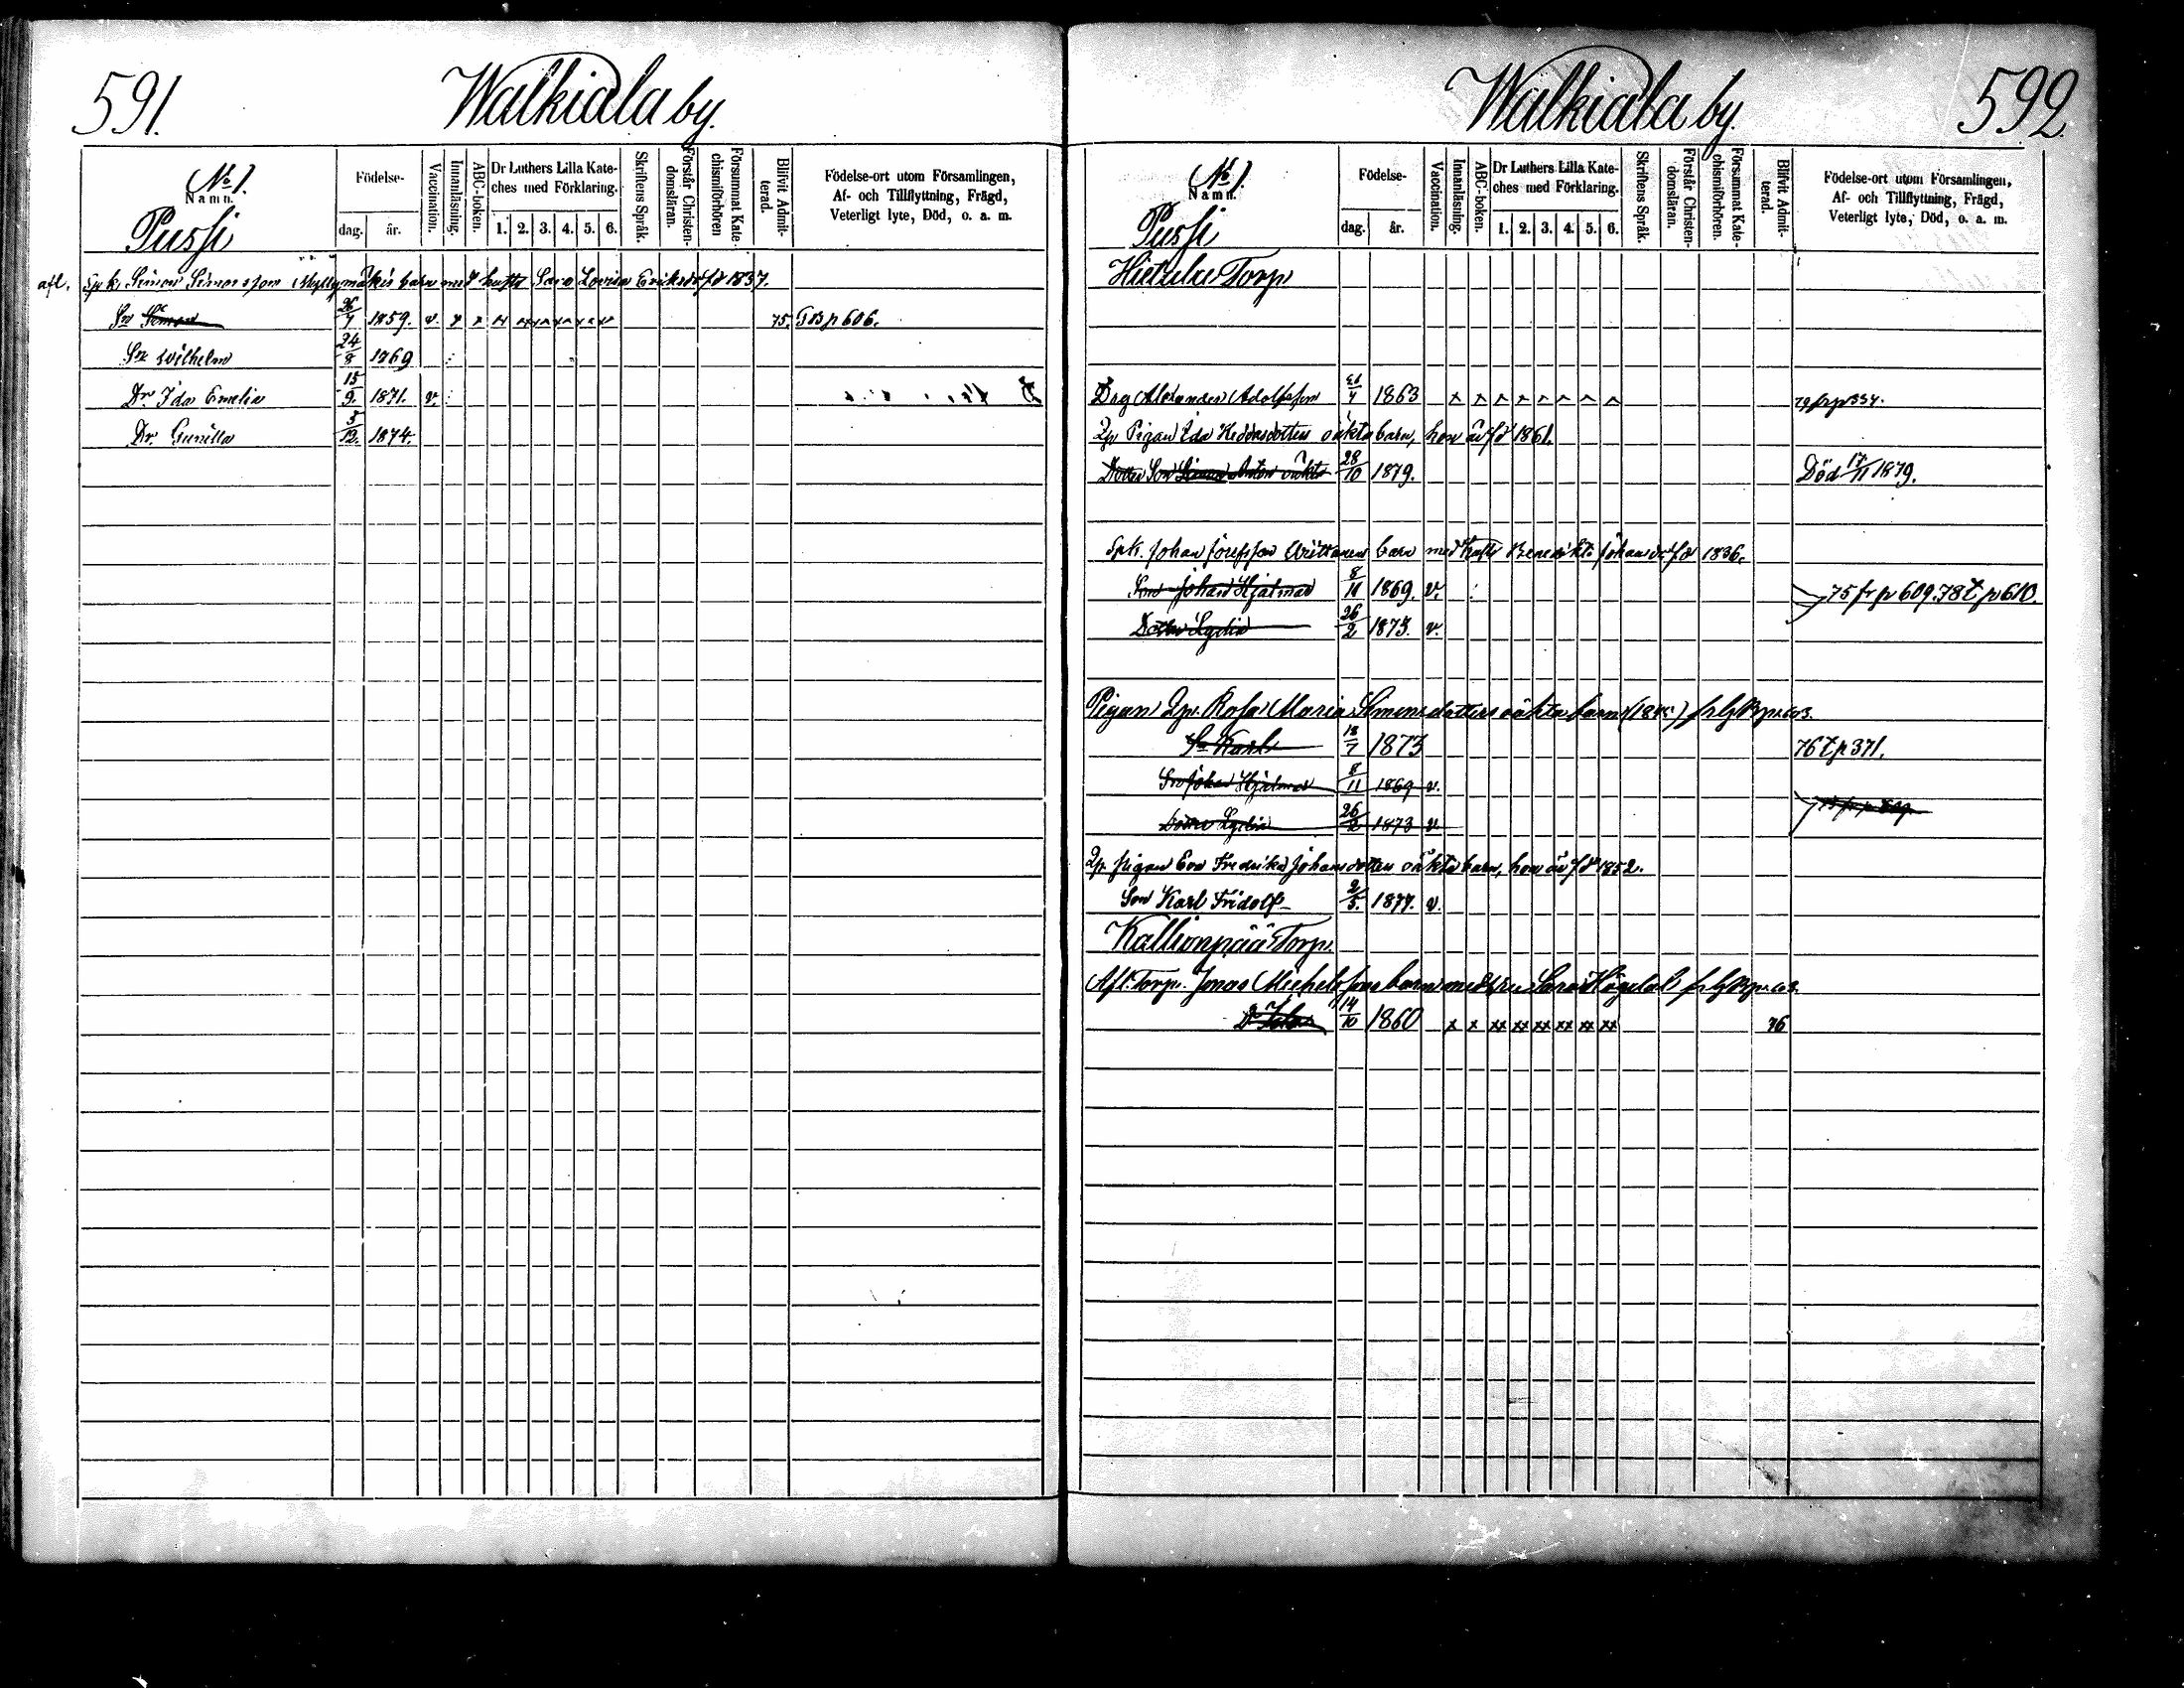 591.
Walkiala by.
No 1.
Namn.
Pussi
Födelse-
dag.
år.
Vaccination.
Innanläsning.
ABC-boken.
Dr Luthers Lilla Kate-
ches med Förklaring.
1. 2. 3. 4. 5. 6.
Skriftens Språk.
Förstår Christen-
domsläran.
Försummat Kate-
chismiförhören
Blifvit Admit-
terad.
Födelse-ort utom Församlingen,
Af- och Tillflyttning, Frägd,
Veterligt lyte, Död, o. a. m.
afl. Spk. Simon Simonsson Myllymäkis barn med hustr Sara Lovisa Eriksdr fd 1837.
Sn Simon 26/7 1859. v. x x 75. T BB p 606.
Sn Wilhelm 24/8 1869
Dr Ida Emelia 15/9. 1871. v.
Dr. Gunilla 5/12. 1874.
Walkiala by.
592.
No 1.
Namn.
Pussi
Födelse-
dag.
år.
Vaccination.
Innanläsning.
ABC-boken.
Dr Luthers Lilla Kate-
ches med Förklaring.
1. 2. 3. 4. 5. 6.
Skriftens Språk.
Förstår Christen-
domsläran.
Försummat Kate-
chismiförhören.
Blifvit Admit-
terad.
Födelse-ort utom Församlingen,
Af- och Tillflyttning, Frägd,
Veterligt lyte, Död, o. a. m.
Torp
Drg Alexander Adolfsson 1863 79 fr p 334.
Qp. Pigan Ida oäkta barn, hon är fd 1861.
Son Anton oäkta 28/10 1879. Död 17/11 1879.
Spk. Johan Josefsson barn med hustr Benedikta Johansdr fd 1836.
Son Johan Hjalmar 8/11 1869. v. 75 fr p 609. 78 t p 610.
Dotter Lydia 26/2 1873. v.
Pigan Qp. Rosa Maria Simonsdotters oäkta barn
Sn Karl 18/7 1873 76 t p 371.
Son Johan Hjalmar 8/11 1869 v.
Dotter Lydia 26/2 1873 v. 75 fr p 609.
Qp. pigan Eva Fredrika Johansdotters oäkta barn, hon är fd 1852.
Son Karl Fridolf 2/5. 1877. v.
Kallionpää Torp.
Afl. Torp. Jonas Michelssons barn med hru Sara
Dr 14/10 1860 x x xx xx xx xx xx xx 76